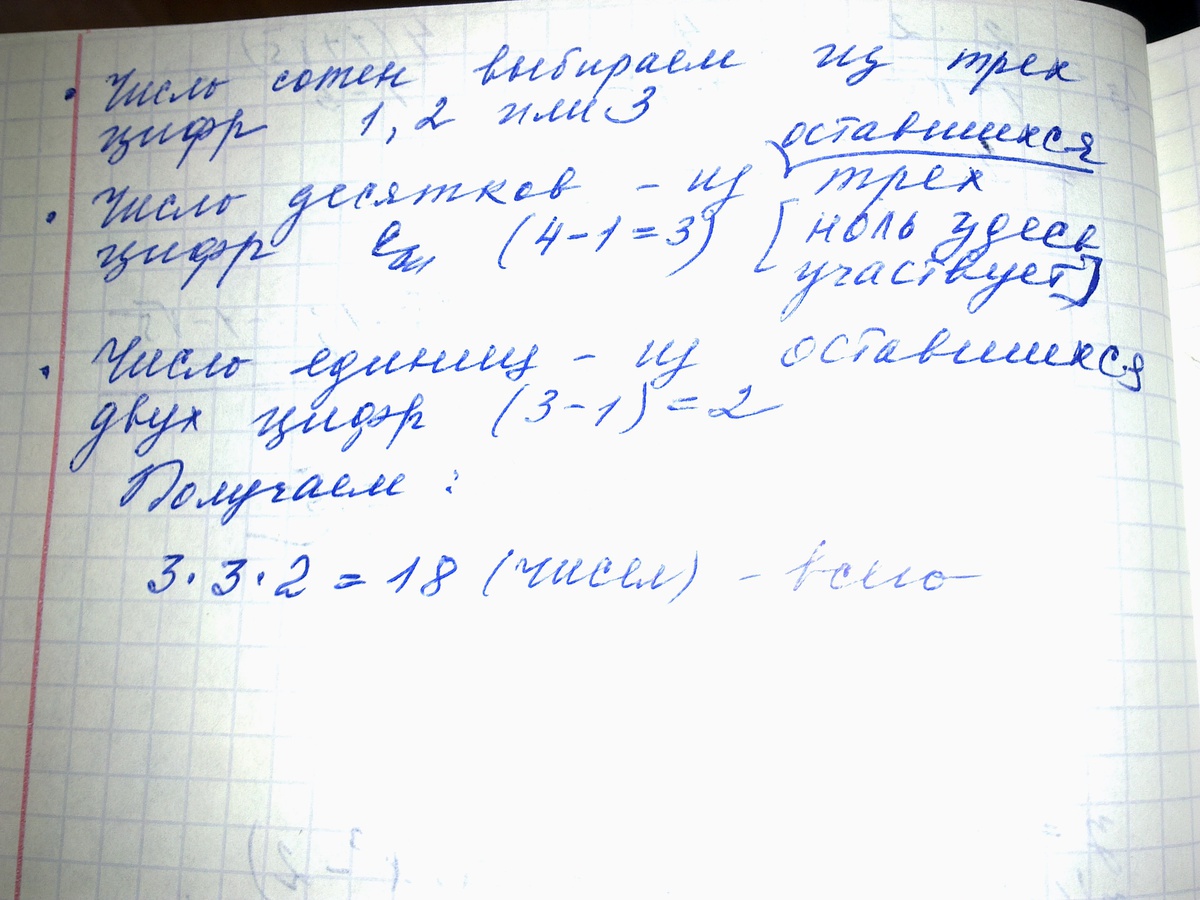 • Число сотен выбираем из трех
цифр 1, 2 или 3
оставшихся
• Число десятков - из трех
цифр (4-1=3) [ноль здесь
участвует]
• Число единиц - из оставшихся
двух цифр (3-1)=2
Получаем:
3·3·2=18 (чисел) - всего